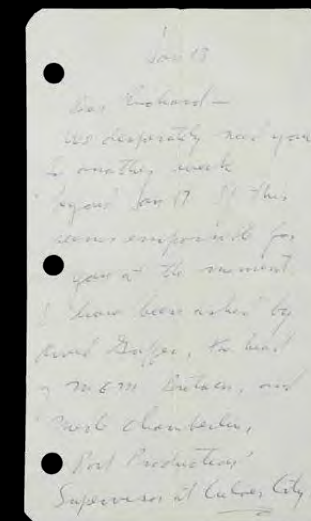 1
Jan 13
Dear Richard —
We desperately need you
for another week
beyond Jan 17. If this
seems impossible for
you at the moment.
I have been asked by
the head
of MGM Britain, and
Merle Chamberlin,
Post Production
Supervisor at Culver City